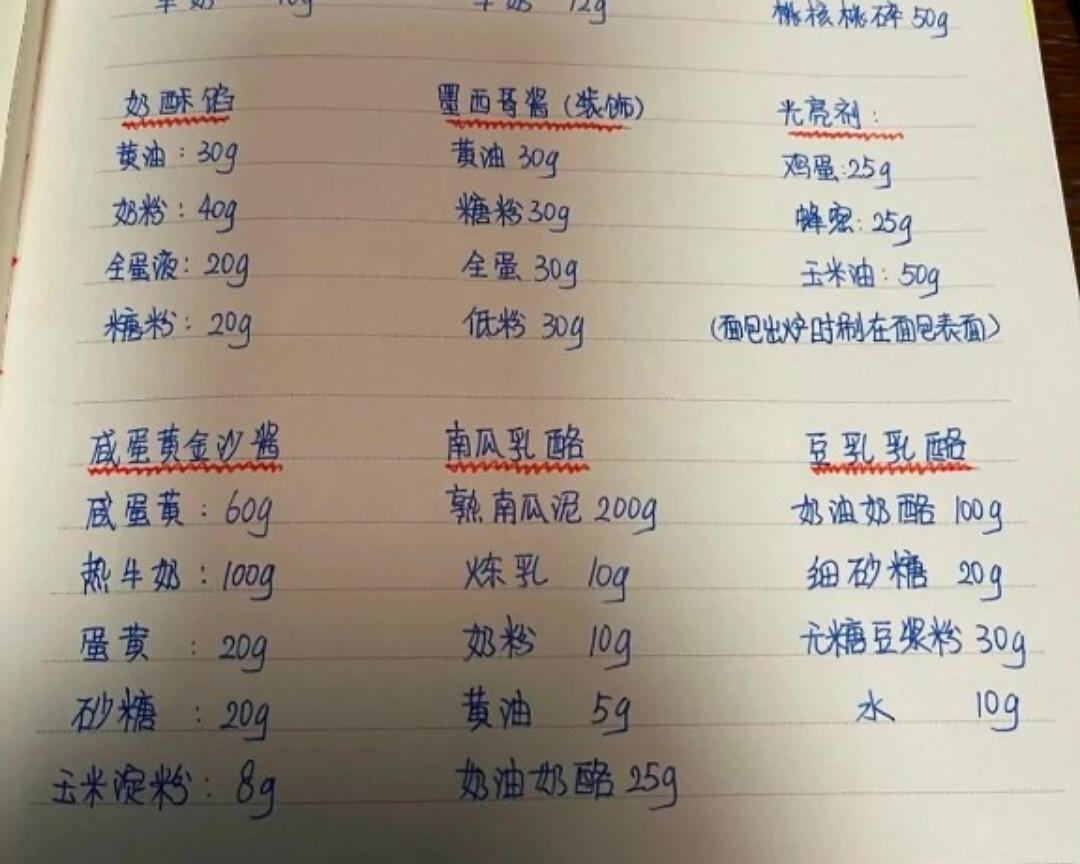 牛奶 12g
桃核桃碎 50g
奶酥馅
黄油：30g
奶粉：40g
全蛋液：20g
糖粉：20g
墨西哥酱（装饰）
黄油 30g
糖粉 30g
全蛋 30g
低粉 30g
光亮剂：
鸡蛋：25g
蜂密：25g
玉米油：50g
（面包出炉时刷在面包表面）
咸蛋黄金沙酱
咸蛋黄：60g
热牛奶：100g
蛋黄：20g
砂糖：20g
玉米淀粉：8g
南瓜乳酪
熟南瓜泥 200g
炼乳 10g
奶粉 10g
黄油 5g
奶油奶酪 25g
豆乳乳酪
奶油奶酪 100g
细砂糖 20g
无糖豆浆粉 30g
水 10g